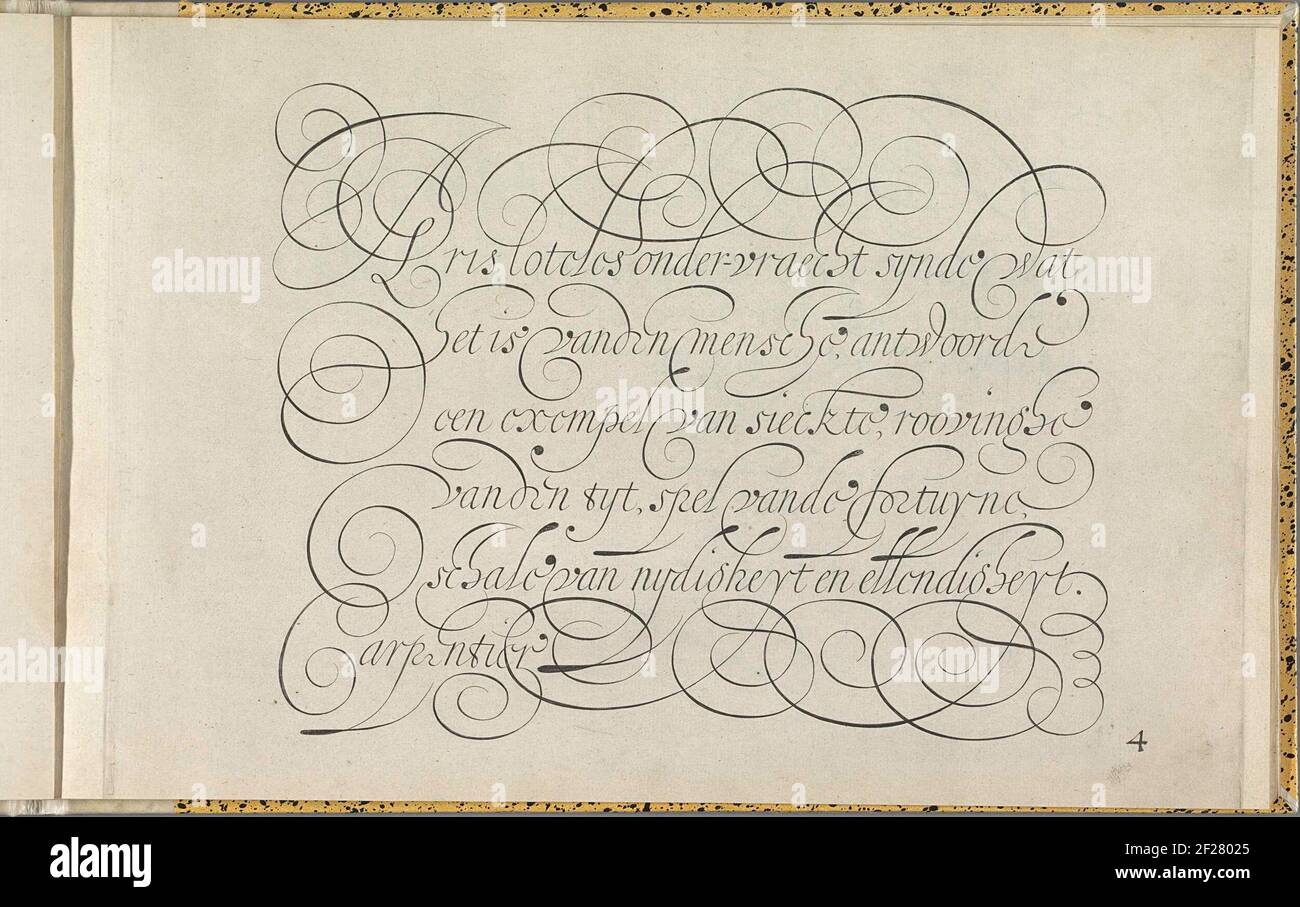 Aristoteles onder-vraecht synde wat
het is vanden mensche, antwoorde
een exempel van sieckte, roovinghe
vanden tyt, spel vande fortuyne,
schale van nydigheyt en ellendigheyt.
Carpentier
4
alamy
Image ID: 2F28025
www.alamy.com